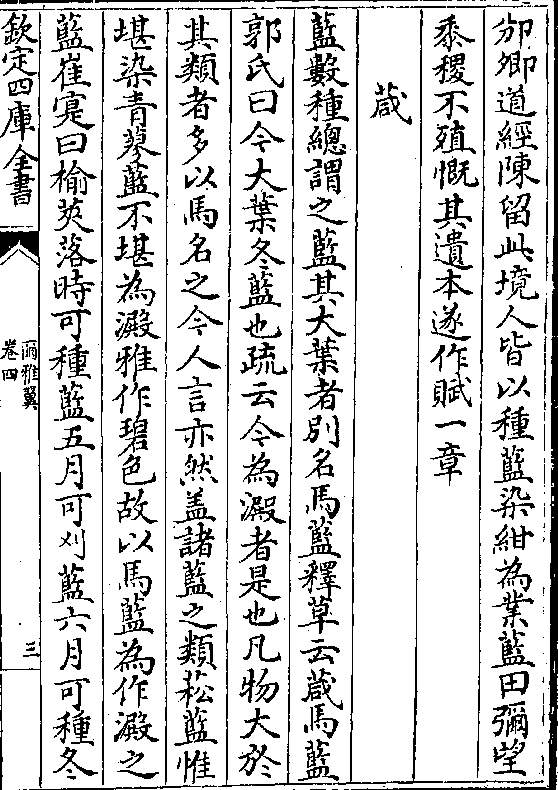 邠卿道經陳留此境人皆以種藍染紺為業藍田彌望
黍稷不殖慨其遺本遂作賦一章
葴
藍數種總謂之藍其大葉者別名馬藍釋草云葴馬藍
郭氏曰今大葉冬藍也疏云今為澱者是也凡物大於
其類者多以馬名之今人言亦然盖諸藍之類菘藍惟
堪染青蓼藍不堪為澱雅作碧色故以馬藍為作澱之
藍崔寔曰榆莢落時可種藍五月可刈藍六月可種冬
欽定四庫全書
爾雅翼
卷四
三